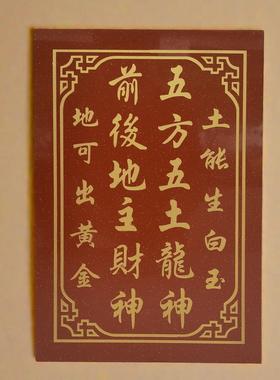 土能生白玉
五方五土龍神
前後地主財神
地可出黃金